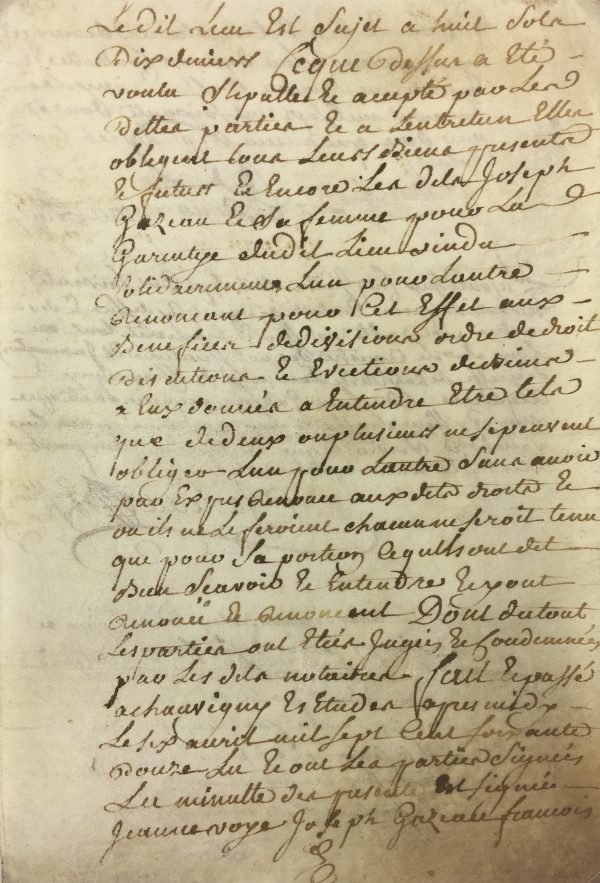 Le dit Lieu Est Sujet a huit Sols
Dix deniers Ceque Dessus a Eté
voulu Stipullé Et acepté par Les
Dittes parties Et a Lentretien Elles
obligent tous Leurs Biens presents
Et futurs Et Encore Les dits Joseph
Gazeau Et Sa femme pour La
Garentye dudit Lieu vendu
Solidairement Lun pour Lautre
Renoncant pour Cet Effet aux
Benefices de divisions ordre de droit
Discutions Et Evictions
a Eux donnés a Entendre Etre tels
que de deux ou plusieurs ne se peuvent
obliger Lun pour Lautre Sans avoir
par Expres Renoncé aux dits droits Et
ou ils ne Le feroient chacun ne Seroit tenu
que pour Sa portion Ce quils ont dit
Bien Scavoir Et Entendre Et y ont
Renoncé Et Renoncent Dont du tout
Les parties ont Etées Jugées Et Condemnées
par Les dits notaires fait Et passé
a chauvigny Es Etudes apres midy
Le six avril mil sept Cent soixante
Douze Lu Et ont Les parties Signées
La minutte des presente Est signée
Jeanne voye Joseph Gazeau francois